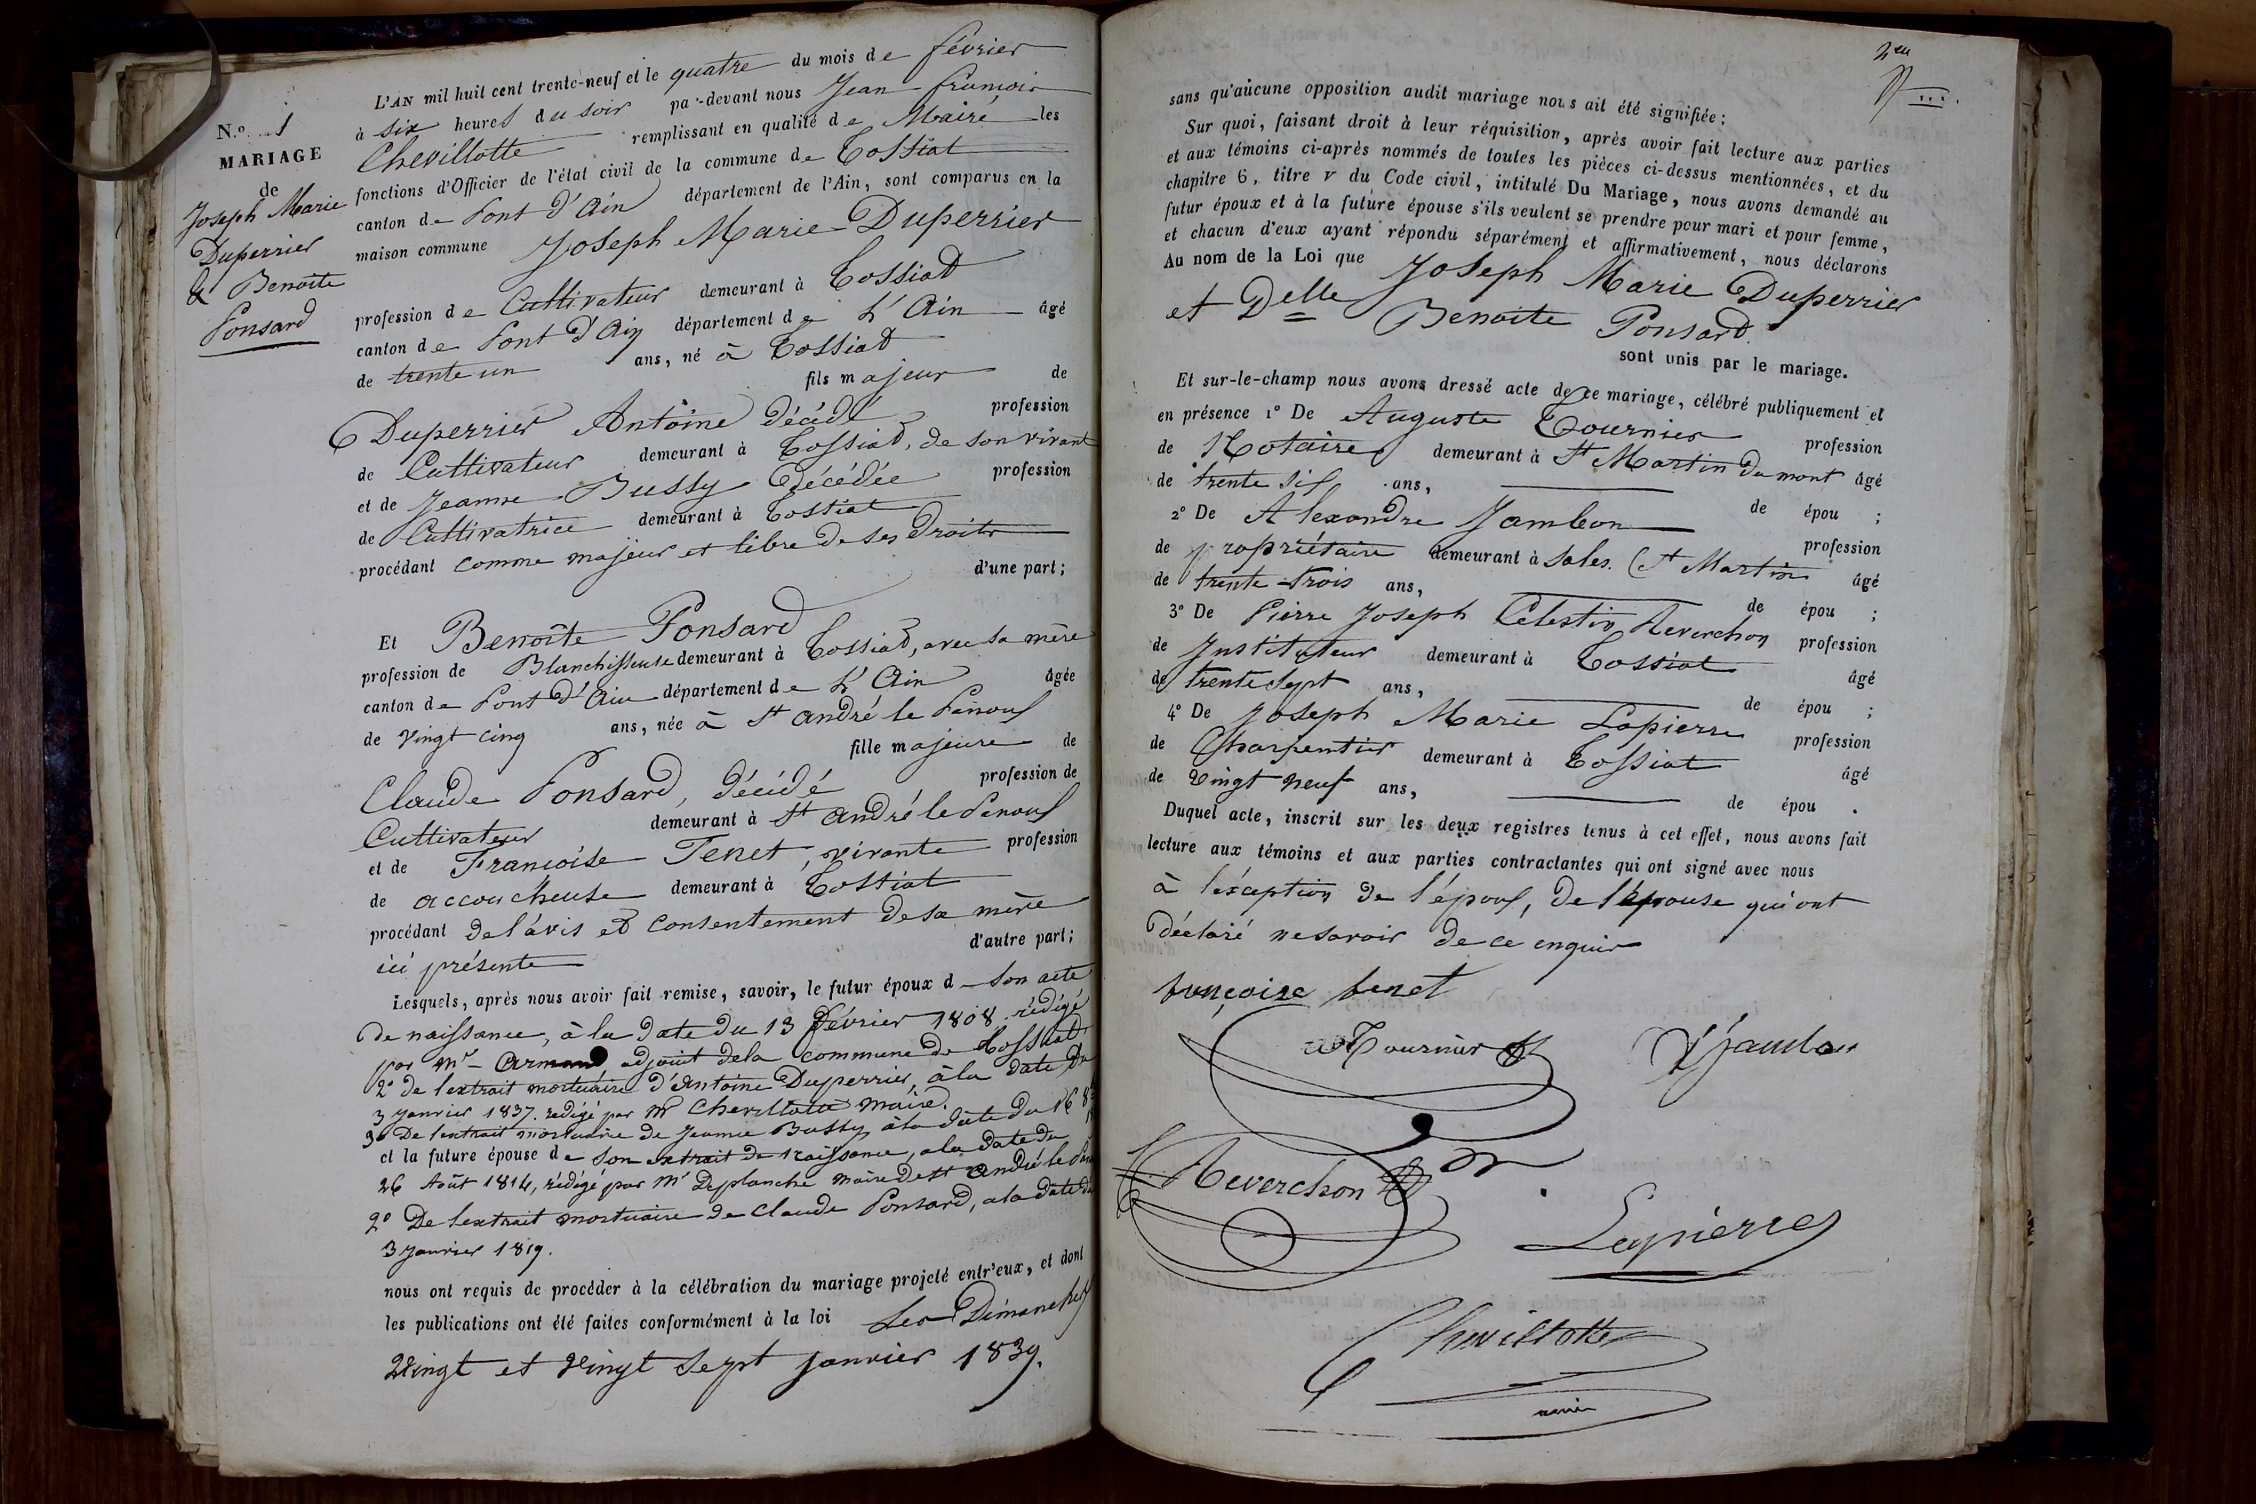 N.o 1
MARIAGE
de
Joseph Marie
Duperrier
& Benoite
Ponsard
L'AN mil huit cent trente-neuf et le quatre du mois de février
à six heures du soir pa-devant nous Jean françois
Chevillotte remplissant en qualité de Maire les
fonctions d'Officier de l'état civil de la commune de Tossiat
canton de Pont d'Ain département de l'Ain, sont comparus en la
maison commune Joseph Marie Duperrier
profession de Cultivateur demeurant à Tossiat
canton de Pont d'Ain département de L'Ain âgé
de trente un ans, né à Tossiat
fils majeur de
Duperrier Antoine décédé profession
de Cultivateur demeurant à Tossiat, de son vivant
et de Jeanne Bussy Décédée profession
de Cultivatrice demeurant à Tossiat
procédant comme majeur et libre de ses Droits
d'une part;
Et Benoite Ponsard
profession de Blanchisseuse demeurant à Tossiat, avec sa mère
canton de Pont d'Ain département de L'Ain âgée
de vingt cinq ans, née à St andré le Panoux
fille majeure de
Claude Ponsard, décédé profession de
Cultivateur demeurant à St andré le Panoux
et de Françoise Tenet, vivante profession
de accoucheuse demeurant à Tossiat
procédant de l'avis et consentement de sa mère
ici présente d'autre part;
Lesquels, après nous avoir fait remise, savoir, le futur époux d son acte
de naissance, à la date du 13 février 1808 rédigé
par Mr adjoint de la commune de Tossiat
2° de l'extrait mortuaire d'Antoine Duperrier, à la date du
3 Janvier 1837. redigé par Mr Chevillotte maire.
3° De l'extrait mortuaire de Jeanne Bussy à la date du 16
et la future épouse de son extrait de naissance, a la date du
26 Août 1814, rédigé par Mr Deplanche maire de St André le
2° De l'extrait mortuaire de Claude Ponsard, a la date du
3 Janvier 1819.
nous ont requis de procéder à la célébration du mariage projeté entr'eux, et dont
les publications ont été faites conformément à la loi Les Dimanches
Vingt et Vingt sept janvier 1839.
sans qu'aucune opposition audit mariage nous ait été signifiée;
Sur quoi, faisant droit à leur réquisition, après avoir fait lecture aux parties
et aux témoins ci-après nommés de toutes les pièces ci-dessus mentionnées, et du
chapitre 6, titre v du Code civil, intitulé Du Mariage, nous avons demandé au
futur époux et à la future épouse s'ils veulent se prendre pour mari et pour femme,
et chacun d'eux ayant répondu séparément et affirmativement, nous déclarons
Au nom de la Loi que Joseph Marie Duperrier
et Delle Benoite Ponsard
sont unis par le mariage.
Et sur-le-champ nous avons dressé acte de ce mariage, célébré publiquement et
en présence 1° De Auguste Tournier profession
de Notaire demeurant à St Martin du mont âgé
de trente six ans, de épou ;
2° De Alexandre Jambon profession
de propriétaire demeurant à Sales. (St Martin âgé
de trente-trois ans, de épou ;
3° De Pierre Joseph Célestin Reverchon profession
de Instituteur demeurant à Tossiat âgé
de trente sept ans, de épou ;
4° De Joseph Marie Lapierre profession
de Charpentier demeurant à Tossiat âgé
de Vingt neuf ans, de épou .
Duquel acte, inscrit sur les deux registres tenus à cet effet, nous avons fait
lecture aux témoins et aux parties contractantes qui ont signé avec nous
à l'exception de l'époux, de l'épouse qui ont
déclaré ne savoir de ce enquis
françoise tenet
Tournier
Jambon
Reverchon
Lapierre
Chevillotte
maire